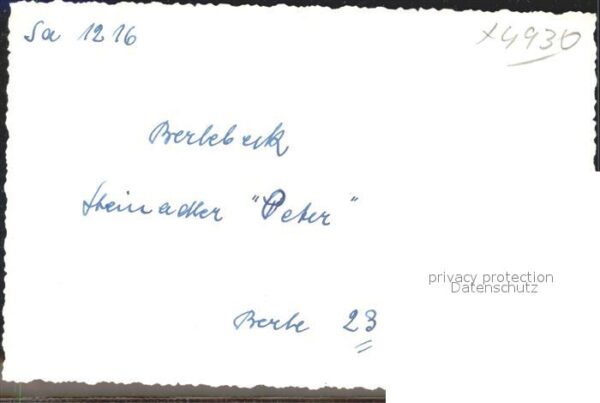 Sa 1216
x4930
Berlebeck
Steinadler "Peter"
privacy protection
Datenschutz
Berle 23